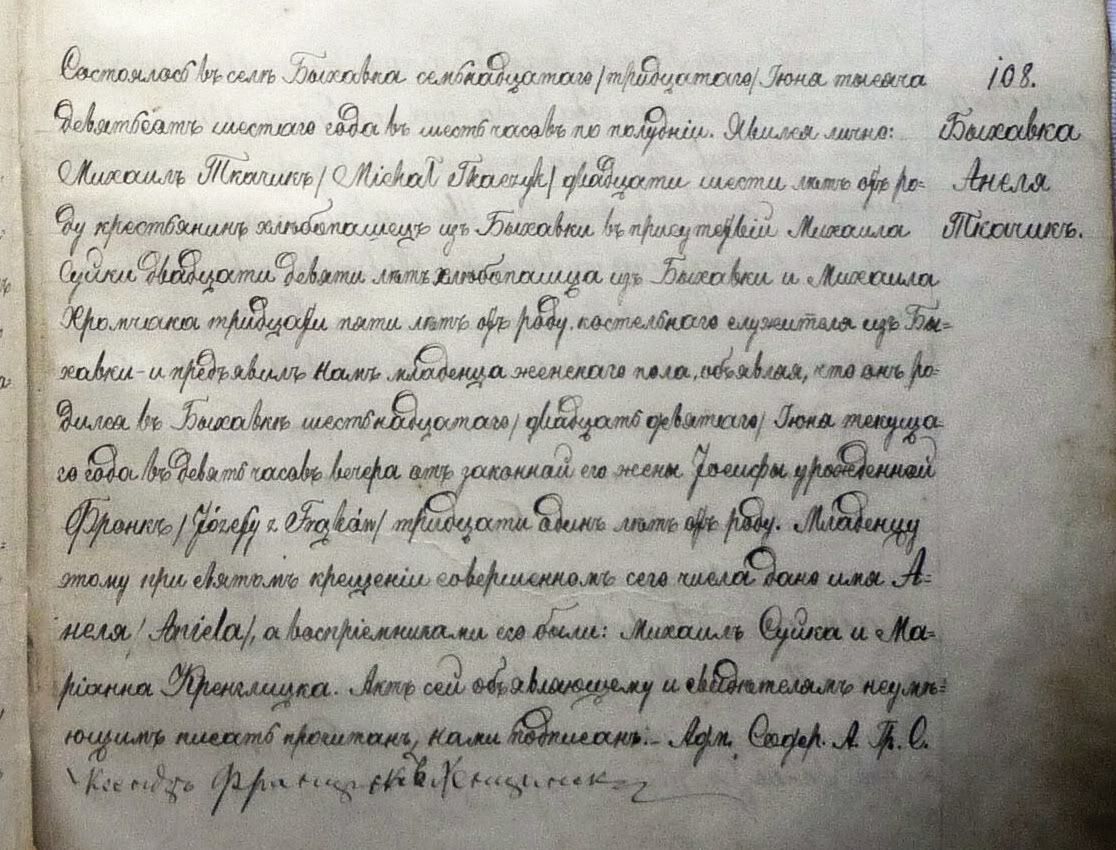 Состоялось въ селѣ Быхавка семьнадцатаго /тридцатаго/ Іюня тысяча
108.
девятьсотъ шестаго года въ шесть часовъ по полудни. Явился лично:
Быхавка
Михаилъ Ткачикъ / Michał Tkaczyk/ двадцати шести лѣтъ отъ ро=
Анеля
ду крестьянинъ хлѣбопашецъ изъ Быхавки въ присутствіи Михаила
Ткачикъ.
Суйки двадцати девяти лѣтъ хлѣбопашца изъ Быхавки и Михаила
Хромчака тридцати пяти лѣтъ отъ роду, костельнаго служителя изъ Бы=
хавки - и предъявилъ намъ младенца женскаго пола, объявляя, что онъ ро=
дился въ Быхавкѣ шестьнадцатаго / двадцать девятаго/ Іюня текуща=
го года въ девять часовъ вечера отъ законной его жены Іосифы урожденной
Фронкъ / Józefy z Frąków/ тридцати одинъ лѣтъ отъ роду. Младенцу
этому при святомъ крещеніи совершенномъ сего числа дано имя А=
неля / Aniela/, а воспріемниками его были: Михаилъ Суйка и Ма=
ріанна Кренглицка. Актъ сей объявляющему и свидѣтелямъ неумѣ=
ющимъ писать прочитанъ, нами подписанъ. - Адм. Содер. А. Гр. С.
Ксендзъ